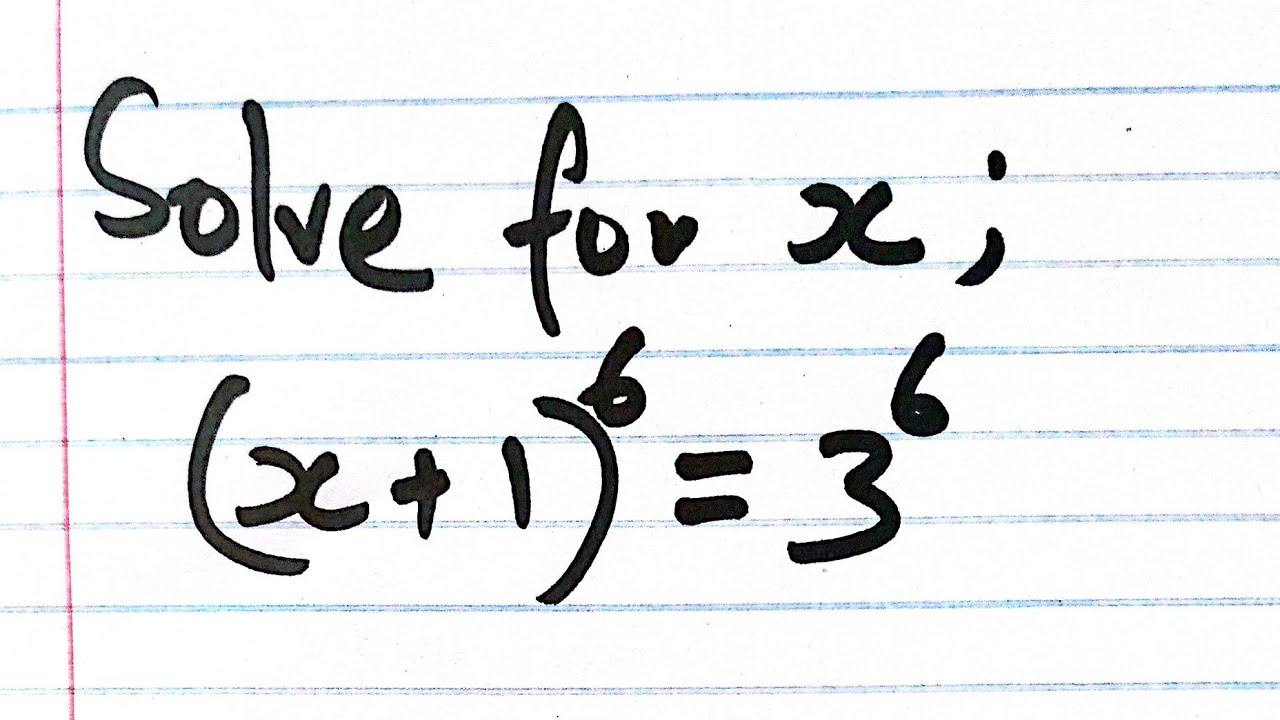 Solve for x;
(x+1)⁶ = 3⁶